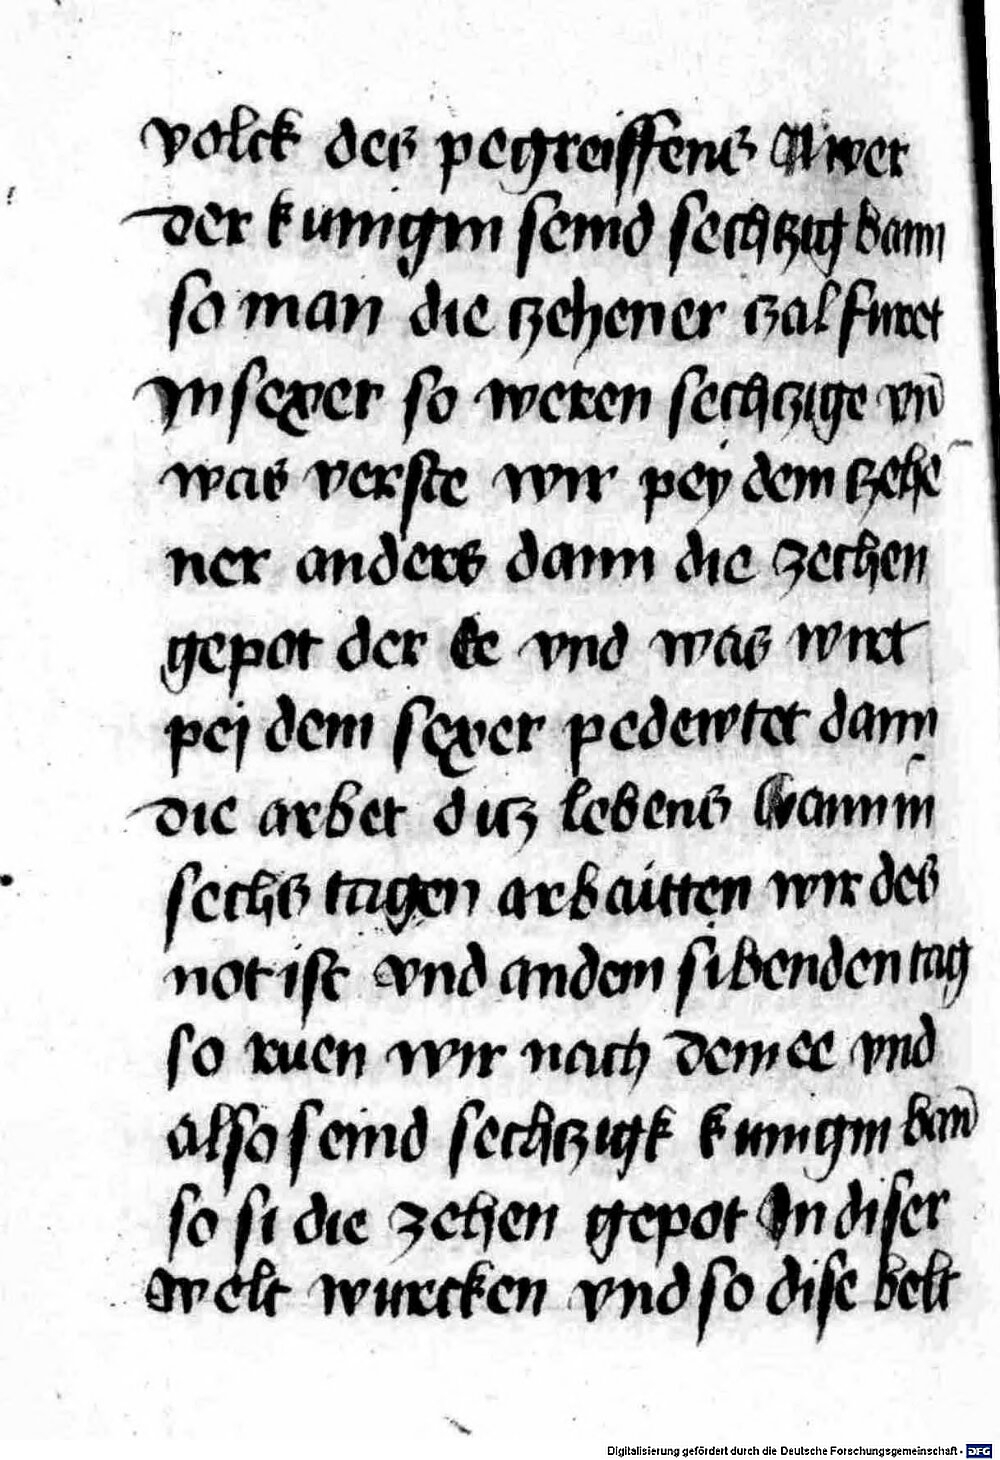 volck des pegreiffens Aber
der kunigin seind sechtzig bann
so man die tzehener tzal furet
In sexer so weren sechtzige vnd̄
was verste wir pey dem tzehe
ner anders dann die zechen
gepot der Ee vnd was wirt
pei dem sexer pedewtet dann
die arbet ditz lebens Wann in
sechs tagen arbaitten wir des
not ist vnd an dem sibenden tag
so ruen wir nach dem ee vnd
also seind sechtzigk kunigin ban̄
so si die zehen gepot In diser
Welt wurcken vnd so dise belt
Digitalisierung gefördert durch die Deutsche Forschungsgemeinschaft - DFG